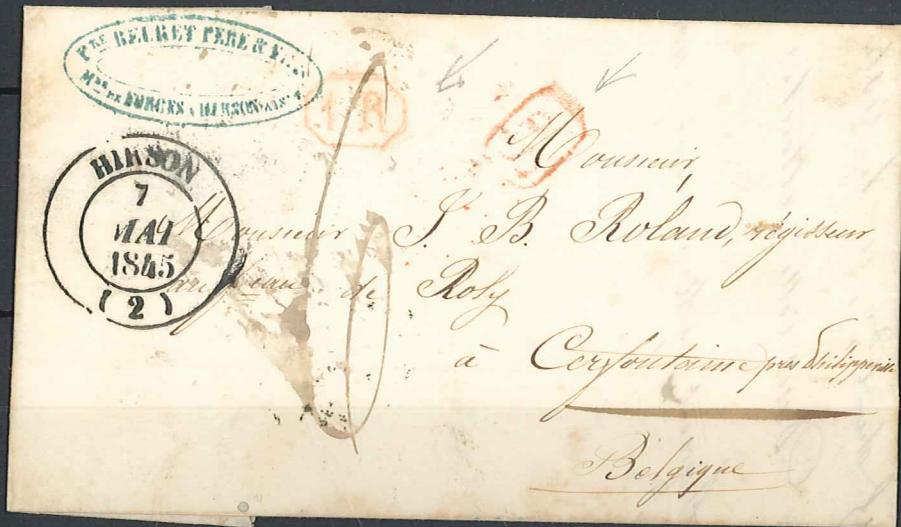 Pre BELRET PERE & FILS
Mtres DE FORGES A HIRSON
1 R
HIRSON
7
MAI
1845
(2)
Monsieur,
Monsieur J. B. Roland, régisseur
au de Roly
à Cerfontaine près Philippeville
Belgique